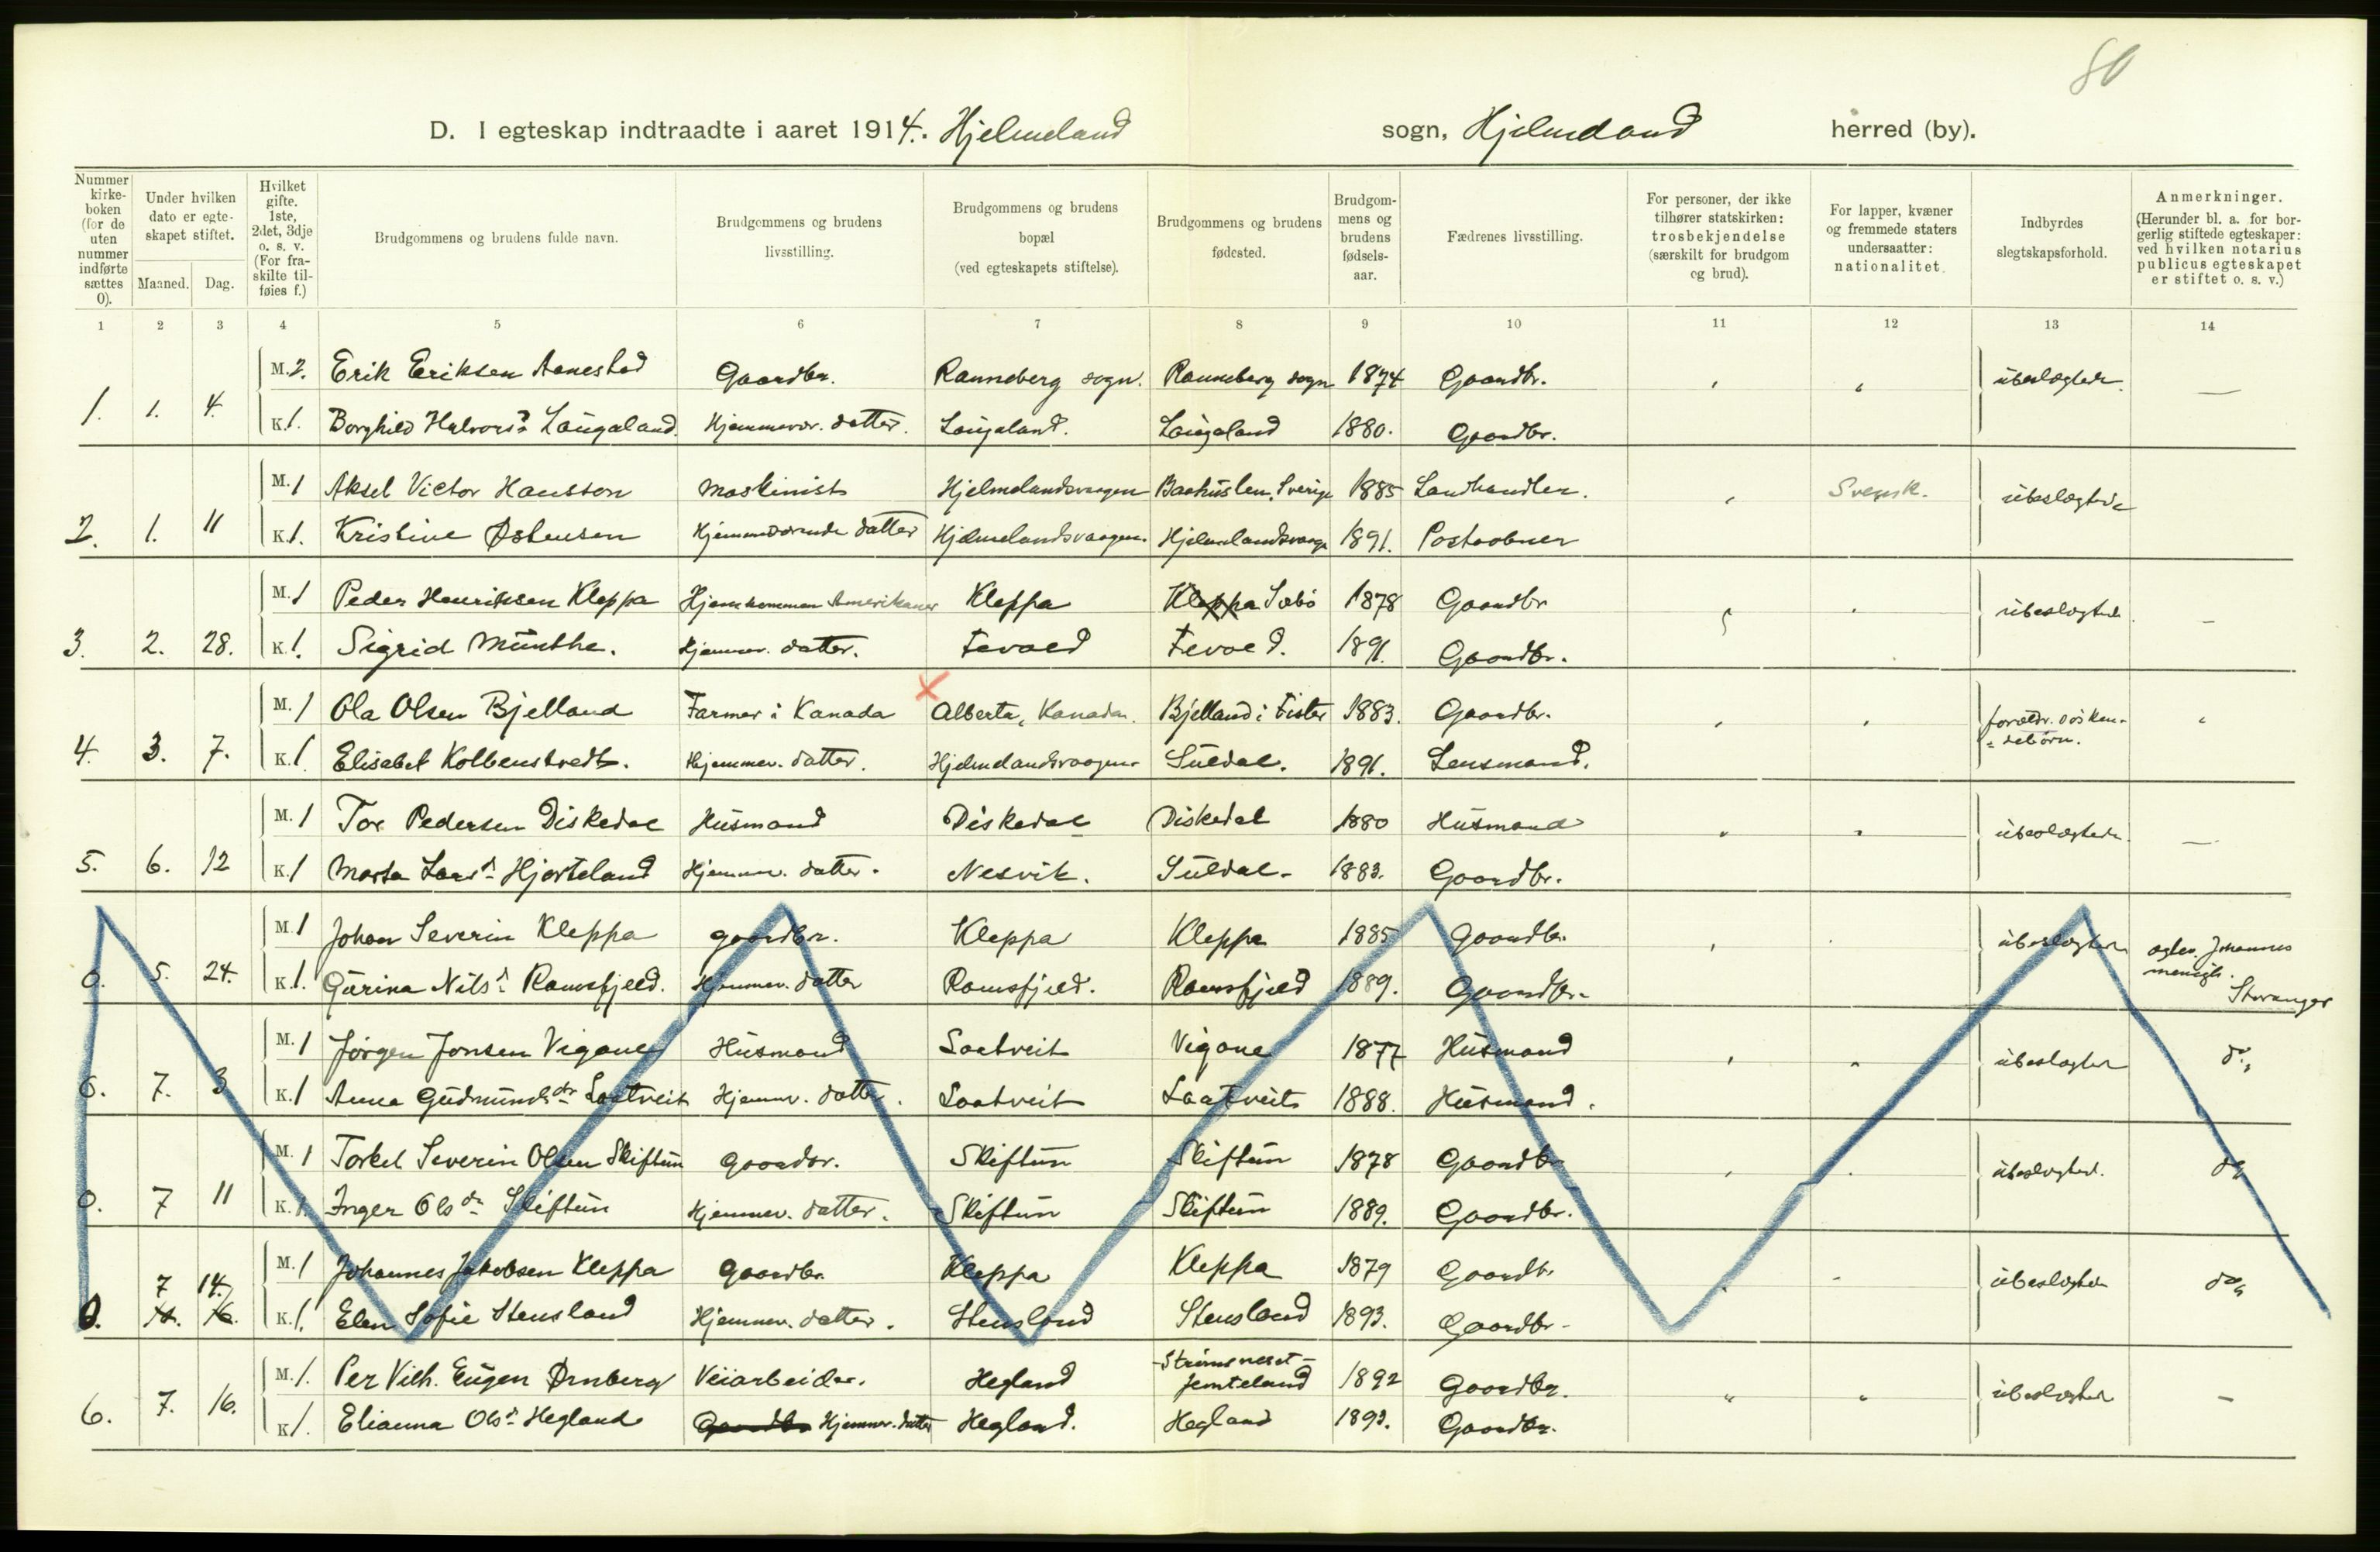 80
D. I egteskap indtraadte i aaret 1914. Hjelmeland sogn, Hjelmeland herred (by).
Nummer kirke-boken (for de uten nummer indførte sættes 0).
Under hvilken dato er egte-skapet stiftet.
Maaned. Dag.
Hvilket gifte. 1ste, 2det, 3dje o. s. v. (For fra-skilte til-føies f.)
Brudgommens og brudens fulde navn.
Brudgommens og brudens livsstilling.
Brudgommens og brudens bopæl (ved egteskapets stiftelse).
Brudgommens og brudens fødested.
Brudgom-mens og brudens fødsels-aar.
Fædrenes livsstilling.
For personer, der ikke tilhører statskirken: trosbekjendelse (særskilt for brudgom og brud).
For lapper, kvæner og fremmede staters undersaatter: nationalitet.
Indbyrdes slegtskapsforhold.
Anmerkninger. (Herunder bl. a. for bor-gerlig stiftede egteskaper: ved hvilken notarius publicus egteskapet er stiftet o. s. v.)
1 2 3 4 5 6 7 8 9 10 11 12 13 14
M. 2. Erik Eriksen Aanestad Gaardbr. Ranneberg sogn. Ranneberg sogn 1874 Gaardbr. " " übeslægtede —
1. 1. 4. K. 1. Borghild Halvorsd. Laugaland. Hjemmevær. datter. Laugaland. Laugaland 1880. Gaardbr.
M. 1 Aksel Victor Hansson Maskinist Hjelmelandsvaagen Baahuslen, Sverige 1885 Landhandler. " Svensk. übeslægtede
2. 1. 11 K. 1. Kristine Østensen Hjemmeværende datter Hjelmelandsvaagen. Hjelmelandsvaagen 1891. Postaabner
M. 1 Peder Henriksen Kleppa Hjemkommen Amerikaner Kleppa Kleppa Sæbö 1878 Gaardbr " " übeslægtede. –
3. 2. 28. K. 1. Sigrid Münthe. Hjemmev. datter. Fevold Fevold. 1891. Gaardbr.
M. 1 Ola Olsen Bjelland Farmer i Kanada Alberta, Kanada. Bjelland i Fister 1883. Gaardbr. " " forældr. søsken-debörn. "
4. 3. 7. K. 1 Elisabet Kolbenstvedt. Hjemmev. datter. Hjelmelandsvaagen Süldal. 1891. Lensmand.
M. 1 Tor Pedersen Diskedal Husmand Diskedal Diskedal 1880 Husmand " " übeslægtede. —
5. 6. 12 K. 1 Marta Larsd. Hjorteland Hjemmev. datter. Nesvik. Süldal. 1883. Gaardbr.
M. 1 Johan Severin Kleppa gaardbr. Kleppa Kleppa 1885 Gaardbr. " " übeslægtede
0. 5. 24. K. 1. Gürina Nilsd. Ramsfjeld. Hjemmev. datter Ramsfjeld. Ramsfjeld 1889. Gaardbr. Johannes menigh. Stavanger
M. 1 Jörgen Jonsen Vigane Husmand Laatveit Vigane 1877 Husmand " " übeslægtede do.
0. 7. 3 K. 1 Anna Gudmundsdtr Laatveit Hjemmev. datter. Laatveit Laatveit 1888. Husmand.
M. 1 Torkel Severin Olsen Skiftun Gaardbr. Skiftun Skiftun 1878 Gaardbr " " übeslægtede. do
0. 7 11 K. 1. Inger Olsdr. Skiftun Hjemmev. datter. Skiftun Skiftun 1889. Gaardbr.
M. 1 Johannes Jakobsen Kleppa Gaardbr. Kleppa Kleppa 1879 Gaardbr. " " übeslægtede do
0. 7 14. K. 1. Elen Sofie Stensland Hjemmev. datter. Stensland Stensland 1893. Gaardbr.
M. 1. Per Vilh. Eugen Ørnberg Veiarbeider. Hegland Strömsneset Jemteland 1892 Gaardbr. " " übeslægtede –
6. 7. 16. K. 1. Elianna Olsd. Hegland Gaardbr Hjemmev. datter Hegland. Hegland 1893. Gaardbr.